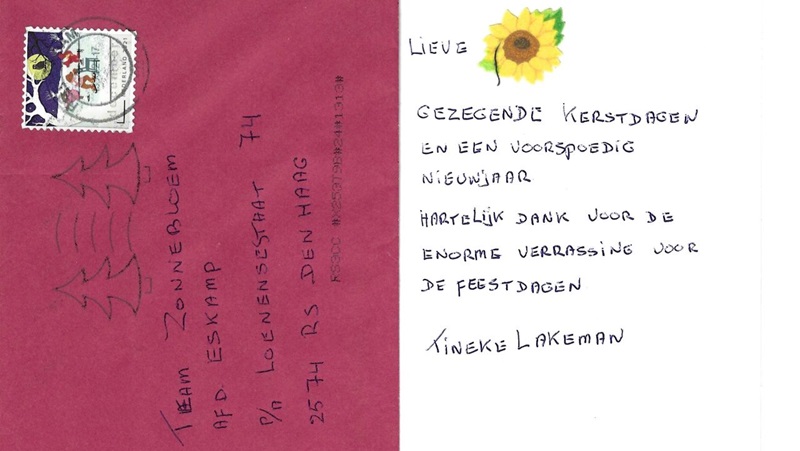 TEAM ZONNEBLOEM
AFD. ESKAMP
P/A LOENENSESTAAT 74
2574 RS DEN HAAG
LIEVE
GEZEGENDE KERSTDAGEN
EN EEN VOORSPOEDIG
NIEUWJAAR
HARTELIJK DANK VOOR DE
ENORME VERRASSING VOOR
DE FEESTDAGEN
TINEKE LAKEMAN